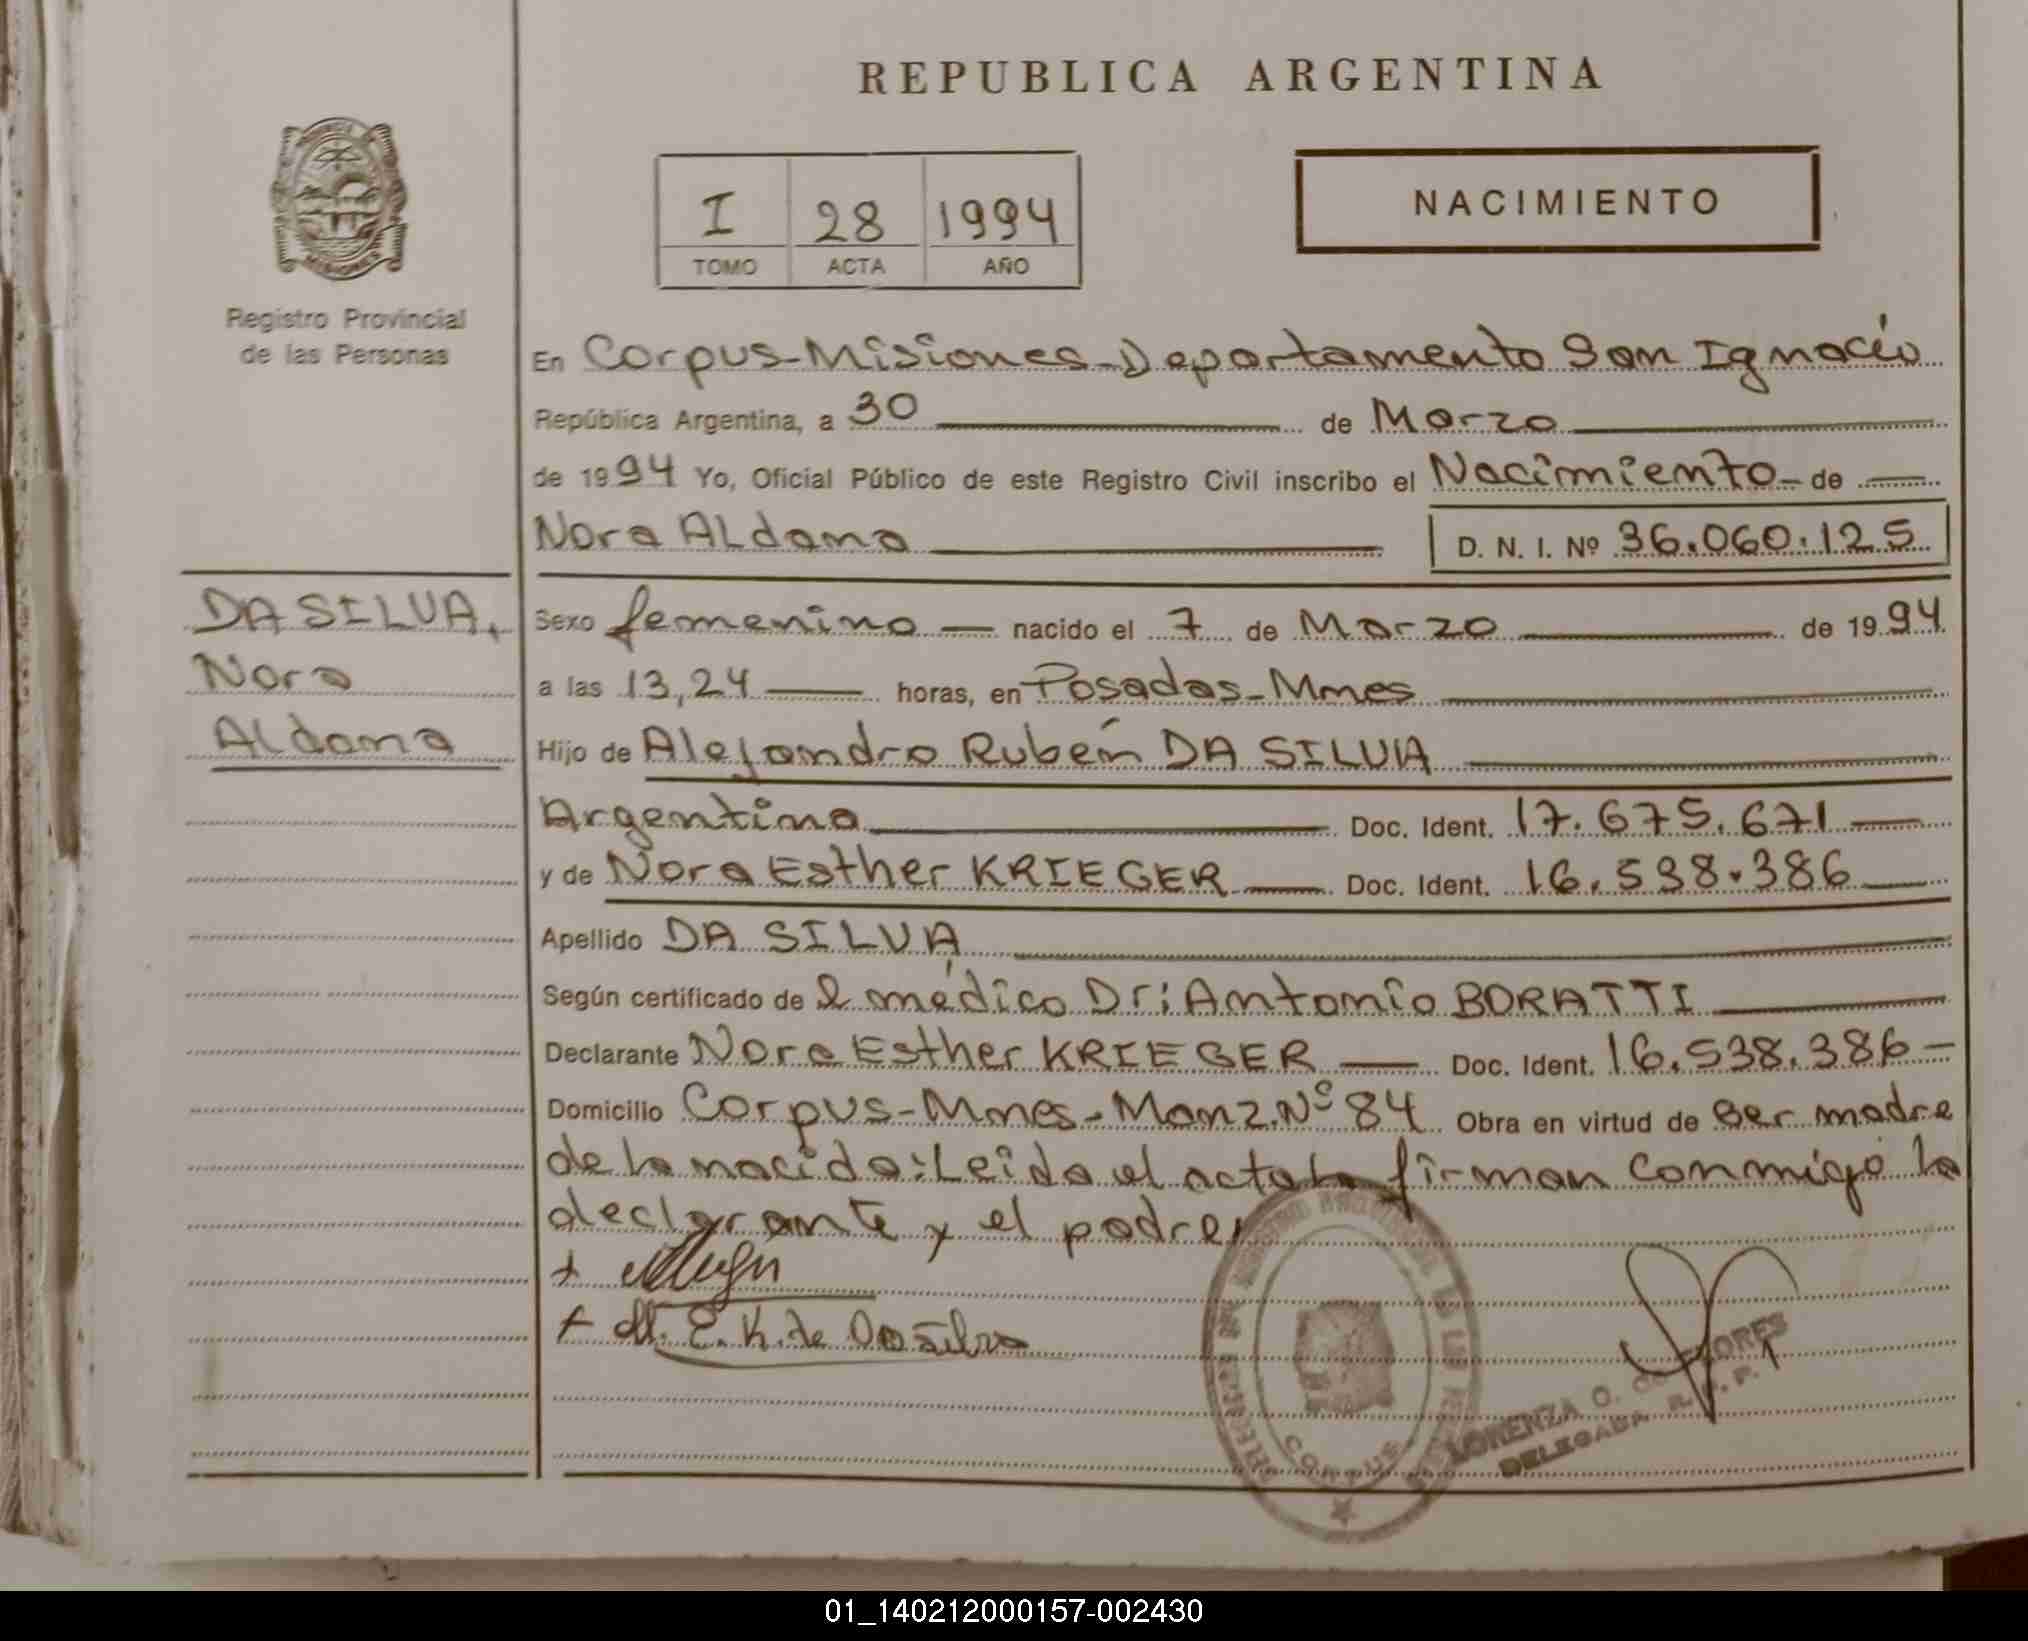 REPUBLICA ARGENTINA
PROVINCIA
MISIONES
Registro Provincial
de las Personas
I 28 1994
TOMO ACTA AÑO
NACIMIENTO
En Corpus-Misiones-Departamento San Ignacio
República Argentina, a 30 de Marzo
de 1994 Yo, Oficial Público de este Registro Civil inscribo el Nacimiento de
Nora ALdana D. N. I. Nº 36.060.125
DA SILVA,
Nora
ALdana
Sexo femenino nacido el 7 de Marzo de 1994
a las 13,24 horas, en Posadas-Mnes
Hijo de Alejandro Rubén DA SILVA
Argentina Doc. Ident. 17.675.671
y de Nora Esther KRIEGER Doc. Ident. 16.538.386
Apellido DA SILVA
Según certificado de el médico Dr: Antonio BORATTI
Declarante Nora Esther KRIEGER Doc. Ident. 16.538.386
Domicilio Corpus-Mnes-Manz.Nº 84 Obra en virtud de ser madre
de la nacida: Leida el acta la firman conmigo la
declarante y el padre
E. K. de Da Silva
CORPUS
LORENZA O. FLORES
DELEGADA R. P. P.
01_140212000157-002430